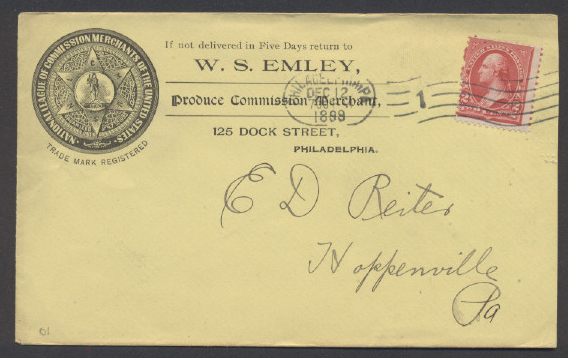 NATIONAL LEAGUE OF COMMISSION MERCHANTS OF THE UNITED STATES
TRADE MARK REGISTERED
If not delivered in Five Days return to
W. S. EMLEY,
Produce Commission Merchant,
125 DOCK STREET,
PHILADELPHIA.
PHILADELPHIA, PA
DEC 12
1898
1
E D Reiter
Hoppenville
Pa